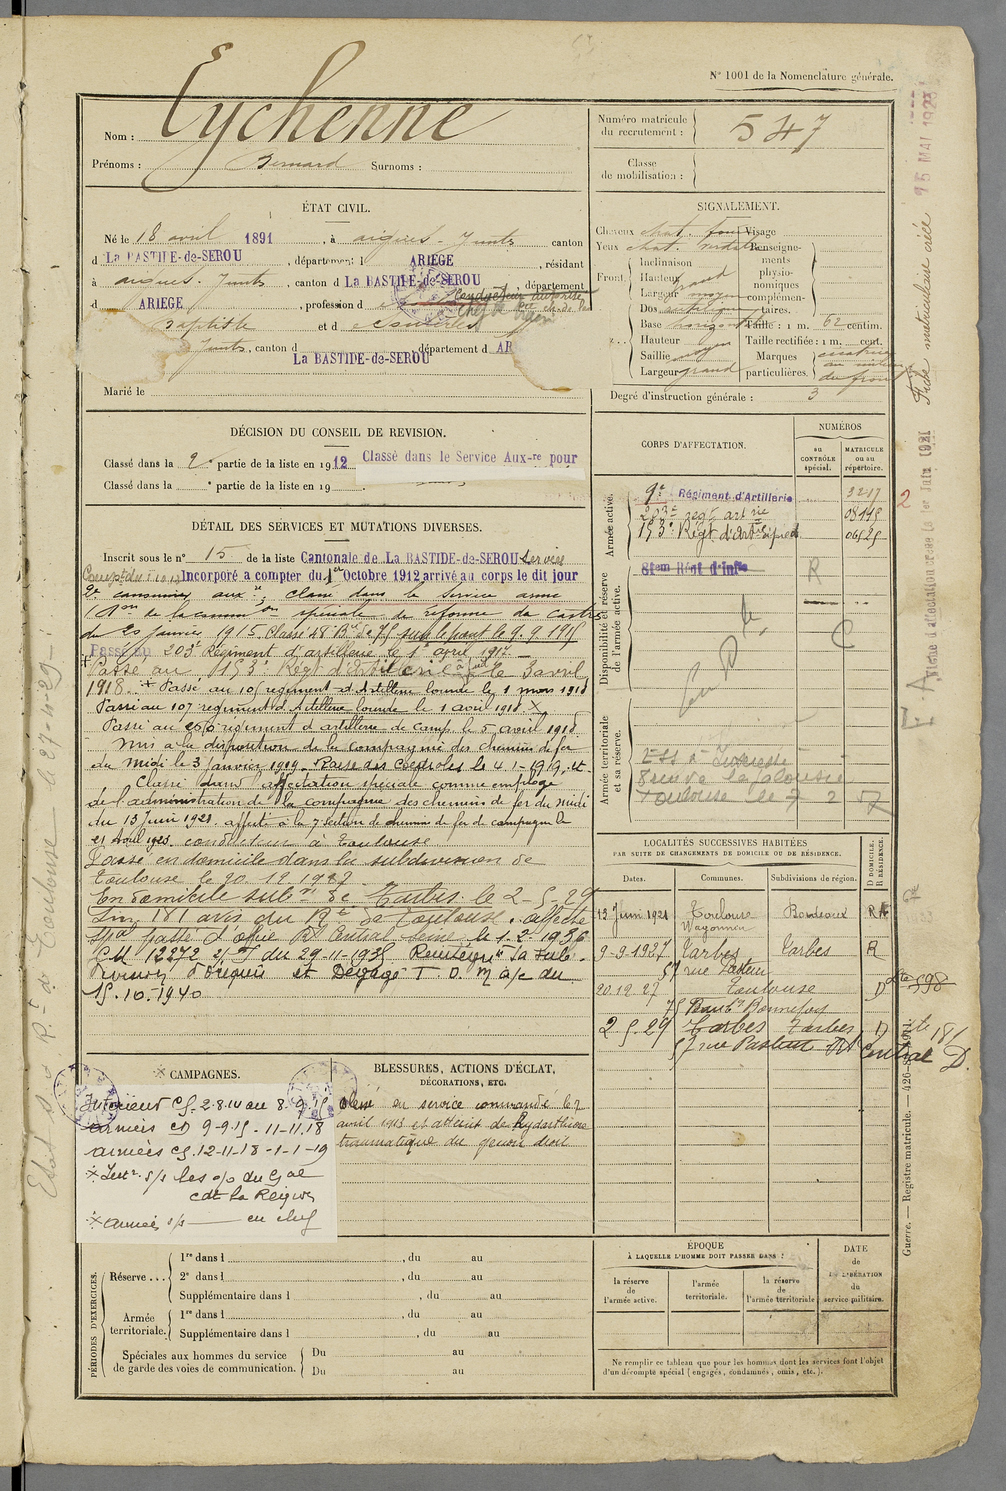 N° 1001 de la Nomenclature générale.
Nom : Eychenne
Prénoms : Bernard Surnoms :
Numéro matricule du recrutement : 547
Classe de mobilisation :
ÉTAT CIVIL.
Né le 18 avril 1891, à aigues-Juntes canton
d La BASTIDE-de-SEROU, département d ARIEGE, résidant
à aigues-Juntes, canton d La BASTIDE-de-SEROU, département
d ARIEGE, profession d
Baptiste et d
Juntes, canton d La BASTIDE-de-SEROU, département d AR
Marié le
SIGNALEMENT.
Cheveux chat. Visage
Yeux chat. Renseigne-
Inclinaison ments
Front Hauteur grand physio-
Largeur moyen nomiques
complémen-
Dos taires.
Base horizontale Taille : 1 m. 62 centim.
Hauteur moyen Taille rectifiée : 1 m. cent.
Saillie moyen Marques cicatrice
Largeur grand particulières. au milieu
du front
Degré d'instruction générale : 3
DÉCISION DU CONSEIL DE REVISION.
Classé dans la 2e partie de la liste en 1912 Classé dans le Service Aux-re pour
Classé dans la ° partie de la liste en 19 .
DÉTAIL DES SERVICES ET MUTATIONS DIVERSES.
Inscrit sous le n° 15 de la liste Cantonale de La BASTIDE-de-SEROU
Incorporé a compter du 1er Octobre 1912 arrivé au corps le dit jour
2e canonnier aux. re Classé dans le Service armé
spéciale de réforme de Castres
du 20 Janvier 1915.
Passé au 203e Régiment d'artillerie le 1er avril 1917
Passé au 153e Régt d'Artillerie à pied le 3 avril
1918. Passé au 107 regiment d'Artillerie lourde le 1 mars 1918
Passé au 107 regiment d'Artillerie lourde le 1 avril 1918. X
Passé au régiment d'artillerie de camp. le 5 avril 1918
Mis à la disposition de la compagnie des chemins de fer
du Midi le 3 Janvier 1919. Rayé des Contrôles le 4-1-1919. et
Classé dans affectation spéciale comme employé
de l'administration de la compagnie des chemins de fer du Midi
du 13 Juin 1921. affecté à la 7 section de chemins de fer de campagne le
21 Avril 1923. conducteur à Toulouse
Passé en domicile dans la subdivision de
Toulouse le 20. 12 1927.
En domicile subon de Tarbes le 2-5-29
181 avis du Rt de Toulouse. affecté
spal passé d'office Rt Central Seine le 1-2-1936
CM 12272 du 29-11-1935
et Dégagé T. O. M a/c du
15-10-1940
CORPS D'AFFECTATION.
NUMÉROS
au CONTRÔLE spécial.
MATRICULE ou au répertoire.
Armée active.
9e Régiment d'Artillerie 3217
203e régt artrie
153e Régt d'Artie à pied
Disponibilité et réserve de l'armée active.
Régt d'Infie R
C
Armée territoriale et sa réserve.
Toulouse le 7 2 27
LOCALITÉS SUCCESSIVES HABITÉES
PAR SUITE DE CHANGEMENTS DE DOMICILE OU DE RÉSIDENCE.
Dates. Communes. Subdivisions de région. D DOMICILE. R RÉSIDENCE.
13 Juin 1921 Toulouse Bordeaux R
Wagonnier
9-9-1927 Tarbes Tarbes R
57 rue Pasteur
20.12.27 Toulouse D
75 Faubg Bonnefoy
2 5. 29 Tarbes Tarbes D
57 rue Pasteur Rt Central D.
CAMPAGNES.
intérieur CS. 2-8-14 au 8-9-15
armées CD 9-9-15-11-11.18
armées CS. 12-11-18-1-1-19
Intr. s/s les o/o du Gal
cdt la Région
armées s/s — en chef
BLESSURES, ACTIONS D'ÉCLAT,
DÉCORATIONS, ETC.
Blessé en service commandé le 7
avril 1913 et atteint de hydarthrose
traumatique du genou droit
PÉRIODES D'EXERCICES.
Réserve...
1re dans l , du au
2e dans l , du au
Supplémentaire dans l , du au
Armée territoriale.
1re dans l , du au
Supplémentaire dans l , du au
Spéciales aux hommes du service
de garde des voies de communication.
Du au
Du au
ÉPOQUE
À LAQUELLE L'HOMME DOIT PASSER DANS :
la réserve de l'armée active.
l'armée territoriale.
la réserve de l'armée territoriale
DATE de la LIBÉRATION du service militaire.
Ne remplir ce tableau que pour les hommes dont les services font l'objet
d'un décompte spécial (engagés, condamnés, omis, etc.).
Fiche matriculaire créée 25 MAI 1923
Fiche d'affectation créée le 1er Juin 1921
Guerre. — Registre matricule. — 426-
Toulouse le 27-4-29